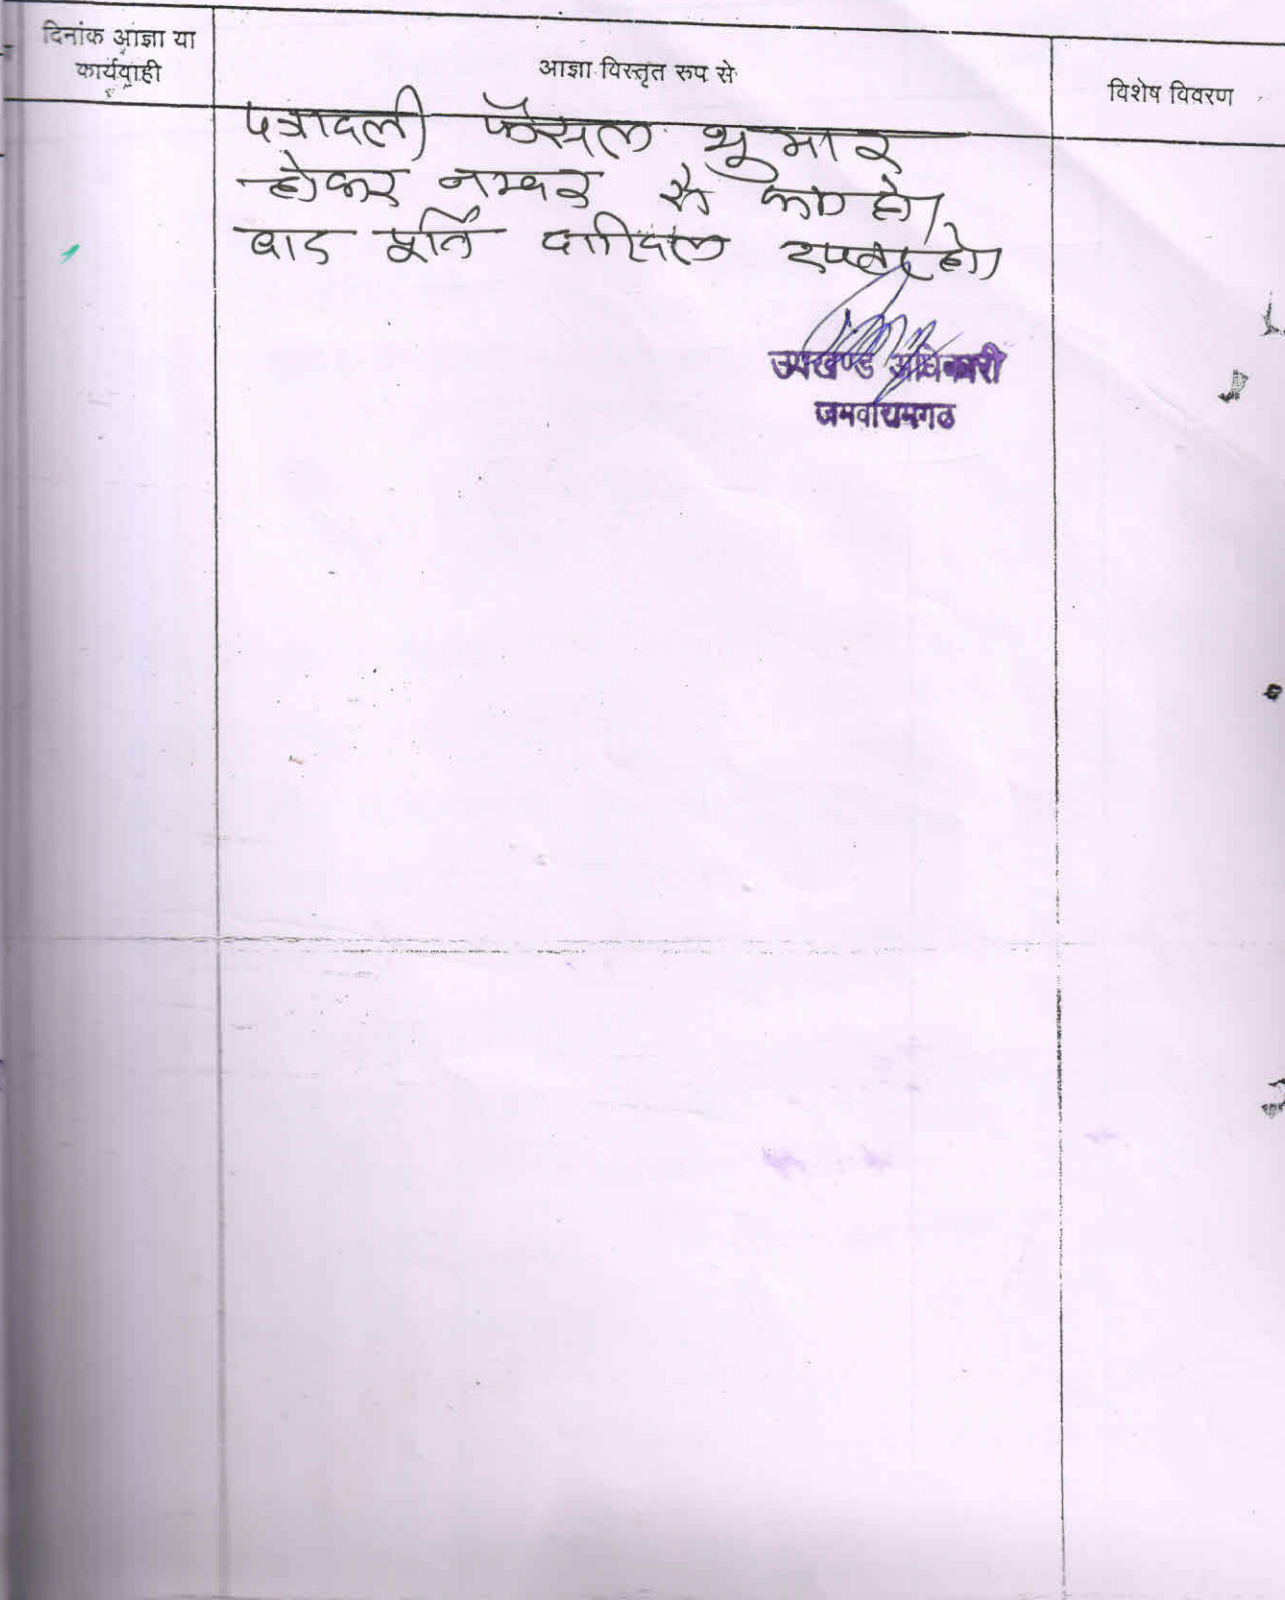 दिनांक आज्ञा या
कार्यवाही
आज्ञा विस्तृत रुप से
विशेष विवरण
पत्रावली फैसल शुमार
होकर नम्बर से कम हो।
बाद पूर्ति दाखिल दफ्तर हो।
उपखण्ड अधिकारी
जमवारामगढ